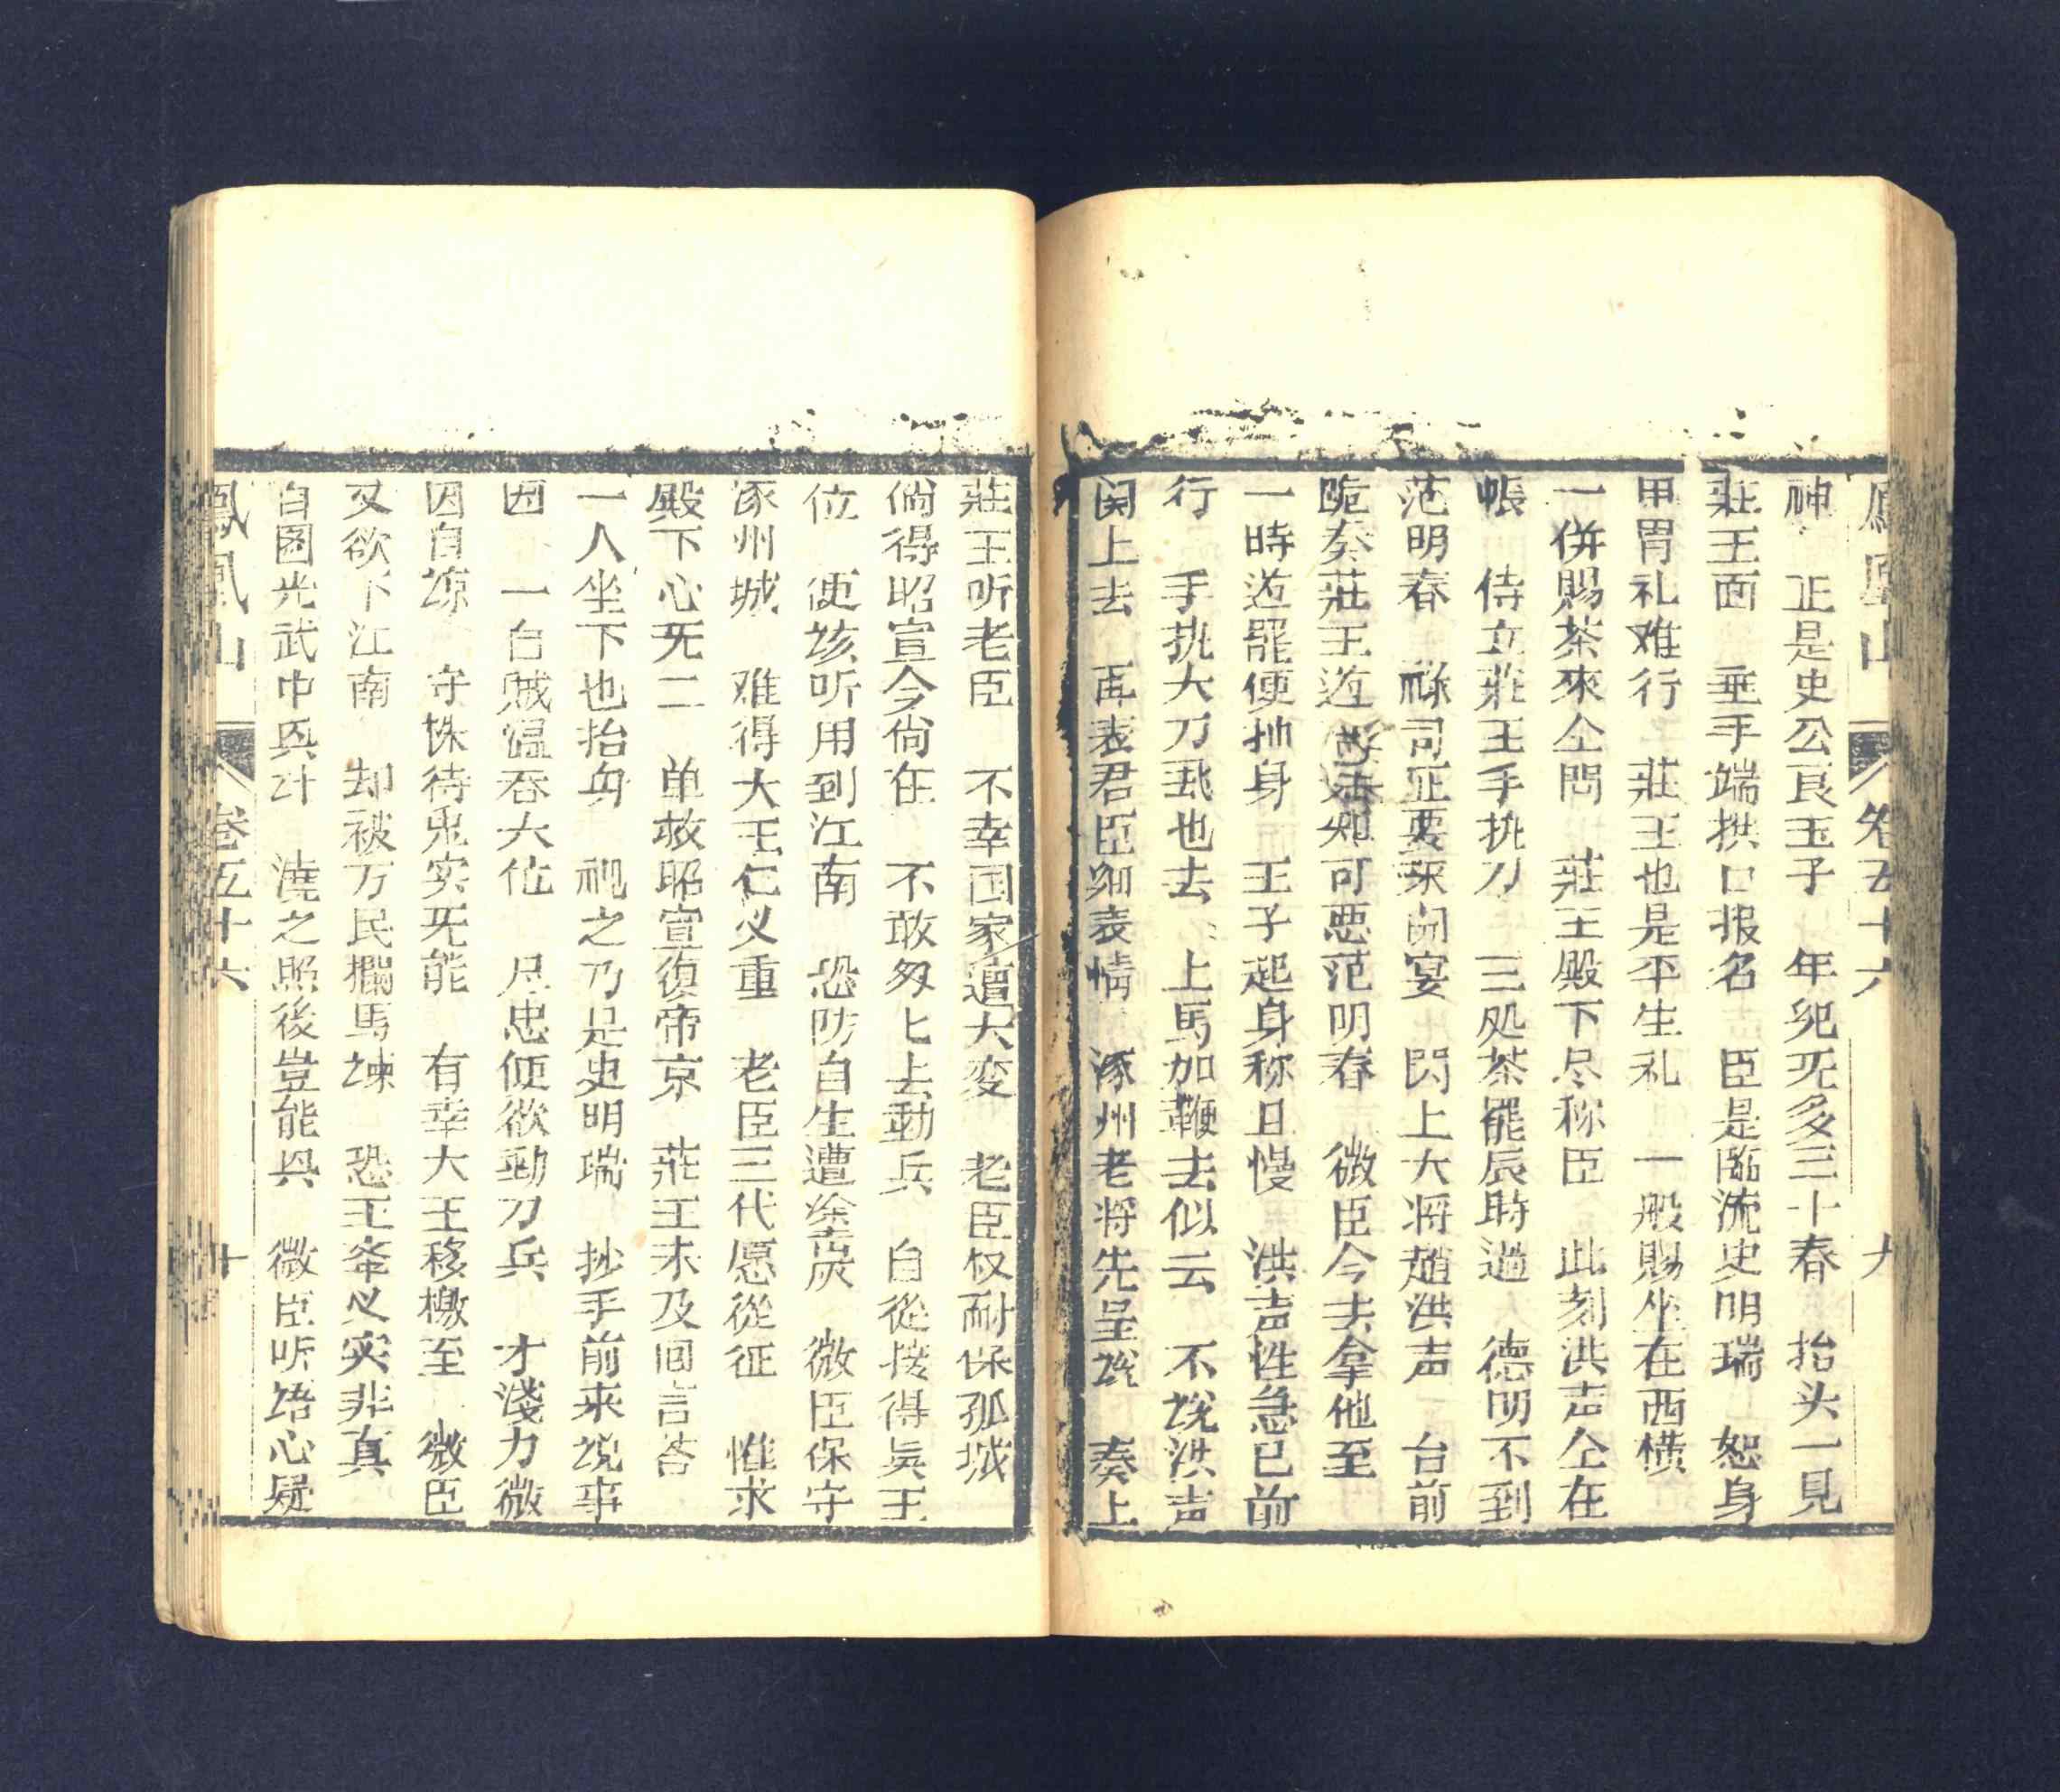 鳳凰山 卷五十六 九
神 正是史公良玉子 年紀无多三十春 抬头一見
莊王面 垂手端拱口报名 臣是臨沇史明瑞 恕身
甲胄礼难行 莊王也是平生礼 一般賜坐在西横
一併賜茶來仝問 莊王殿下尽称臣 此刻洪声仝在
帳 侍立莊王手挑刀 三处茶罷辰時過 德明不到
范明春 祿司正要來開宴 閃上大将趙洪声 台前
跪奏莊王道 可恶范明春 微臣今去拿他至
一時道罷便抽身 王子起身称且慢 洪声性急已前
行 手执大刀飛也去 上馬加鞭去似云 不説洪声
関上去 再表君臣細表情 涿州老将先呈説 奏上
莊王听老臣 不幸国家遭大变 老臣权耐保孤城
倘得昭宣今尚在 不敢匆匕去動兵 自從接得眞王
位 便该听用到江南 恐防自生遭塗炭 微臣保守
涿州城 难得大王仁义重 老臣三代愿從征 惟求
殿下心无二 单救昭宣復帝京 莊王未及囬言答
一人坐下也抬身 視之乃是史明瑞 抄手前来説事
因 一自贼温吞大位 尽忠便欲動刀兵 才淺力微
因自谅 守株待兎实无能 有幸大王移檄至 微臣
又欲下江南 却被万民攔馬諫 恐王举义实非真
自图光武中兴计 漢之照後豈能興 微臣听语心疑
鳳凰山 卷五十六 十